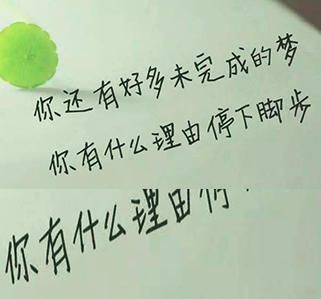 你还有好多未完成的梦
你有什么理由停下脚步
你有什么理由停